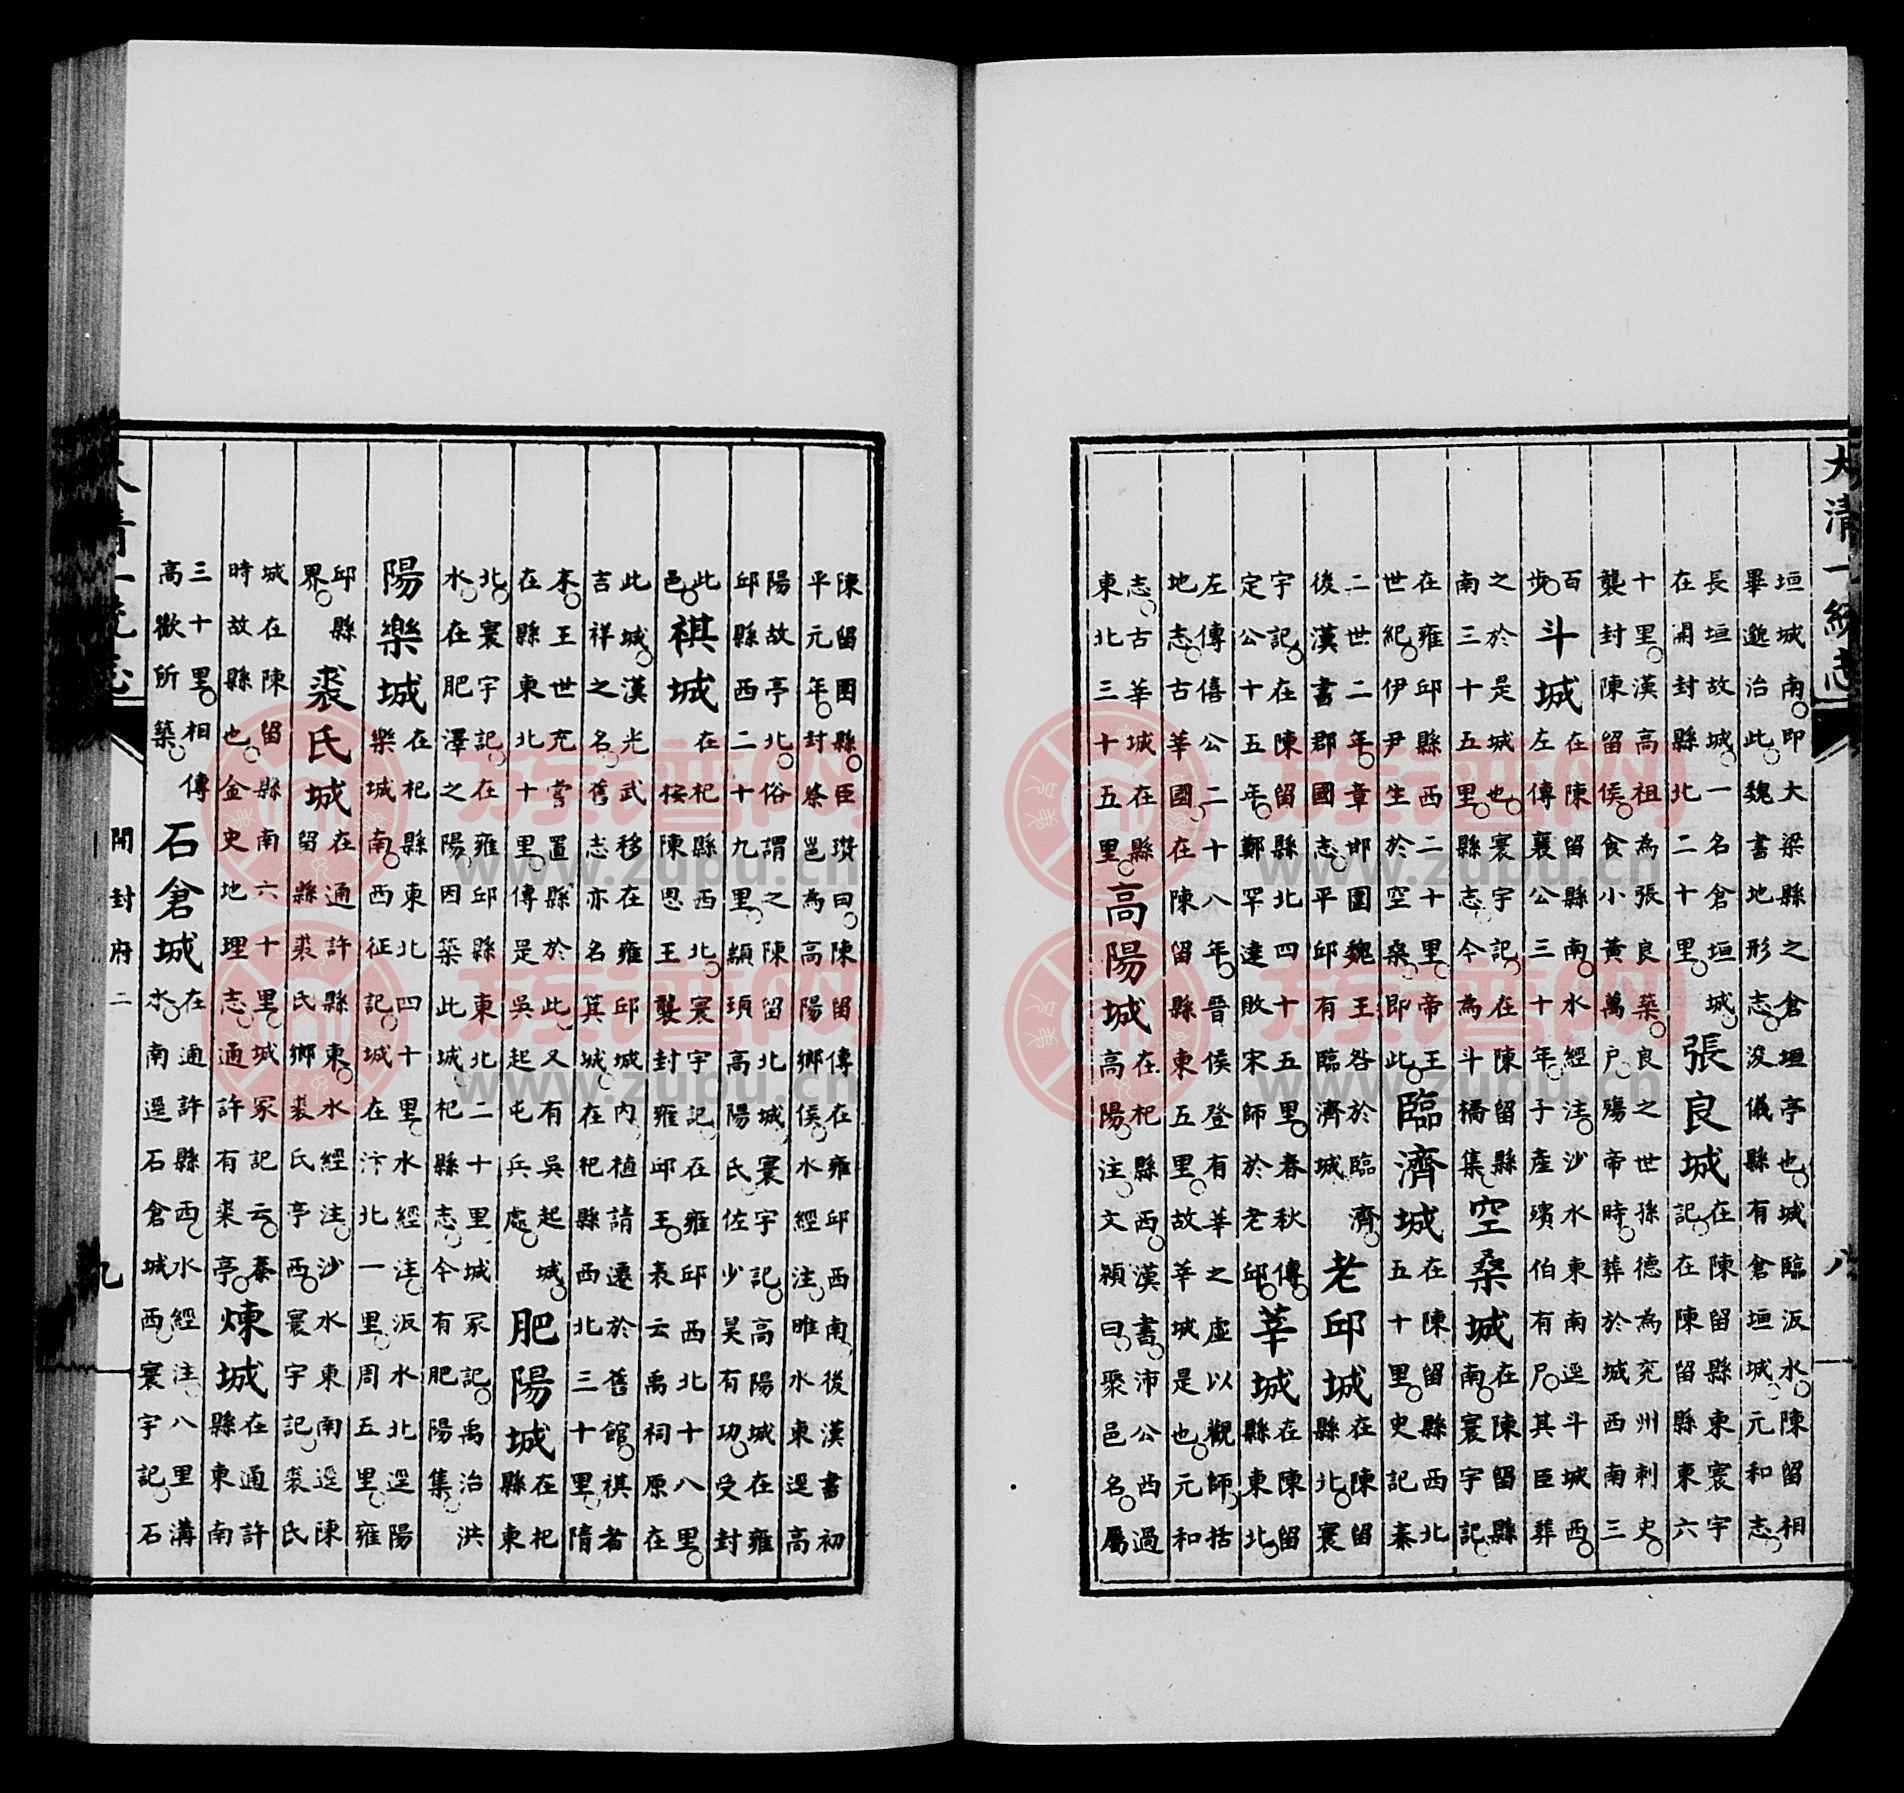 大清一統志 八
垣城南即大梁縣之倉垣亭也城臨汳水陳留相
畢邈治此魏書地形志浚儀縣有倉垣城元和志
長垣故城一名倉垣城
在開封縣北二十里
張良城
在陳留縣東寰宇
記在陳留縣東六
十里漢高祖為張良築良之世孫德為兗州刺史
襲封陳留侯食小黃萬戶殤帝時葬於城西南三
百
步
斗城
在陳留縣南水經注沙水東南逕斗城西
左傳襄公三十年子產殯伯有尸其臣葬
之於是城也寰宇記在陳留縣
南三十五里縣志今為斗橋集
空桑城
在陳留縣
南寰宇記
在雍邱縣西二十里帝王
世紀伊尹生於空桑即此
臨濟城
在陳留縣西北
五十里史記秦
二世二年章邯圍魏王咎於臨濟
後漢書郡國志平邱有臨濟城
老邱城
在陳留
縣北寰
宇記在陳留縣北四十五里春秋傳
定公十五年鄭罕達敗宋師於老邱
莘城
在陳留
縣東北
左傳僖公二十八年晉侯登有莘之虛以觀師括
地志古莘國在陳留縣東五里故莘城是也元和
志古莘城在縣
東北三十五里
高陽城
在杞縣西漢書沛公西過
高陽注文穎曰聚邑名屬
陳留圉縣臣瓚曰陳留傳在雍邱西南後漢書初
平元年封蔡邕為高陽鄉侯水經注睢水東逕高
陽故亭北俗謂之陳留北城寰宇記高陽城在雍
邱縣西二十九里顓頊高陽氏佐少昊有功受封
此
邑
祺城
在杞縣西北寰宇記在雍邱西北十八里
按陳思王襲封雍邱王表云禹祠原在
此城漢光武移在雍邱城內植請遷於舊館祺者
吉祥之名舊志亦名箕城在杞縣西北三十里隋
末王世充嘗置縣於此又有吳起城
在縣東北十里傳是吳起屯兵處
肥陽城
在杞
縣東
北寰宇記在雍邱縣東北二十里城冢記禹治洪
水在肥澤之陽因築此城杞縣志今有肥陽集
陽樂城
在杞縣東北四十里水經注汳水北逕陽
樂城南西征記城在汴北一里周五里雍
邱縣
界
裘氏城
在通許縣東水經注沙水東南逕陳
留縣裘氏鄉裘氏亭西寰宇記裘氏
城在陳留縣南六十里城冢記云秦
時故縣也金史地理志通許有裘亭
煉城
在通許
縣東南
三十里相傳
高歡所築
石倉城
在通許縣西水經注八里溝
水南逕石倉城西寰宇記石
大清一統志 開封府二 九
族谱网
www.zupu.cn
族谱网
www.zupu.cn
族谱网
www.zupu.cn
族谱网
www.zupu.cn